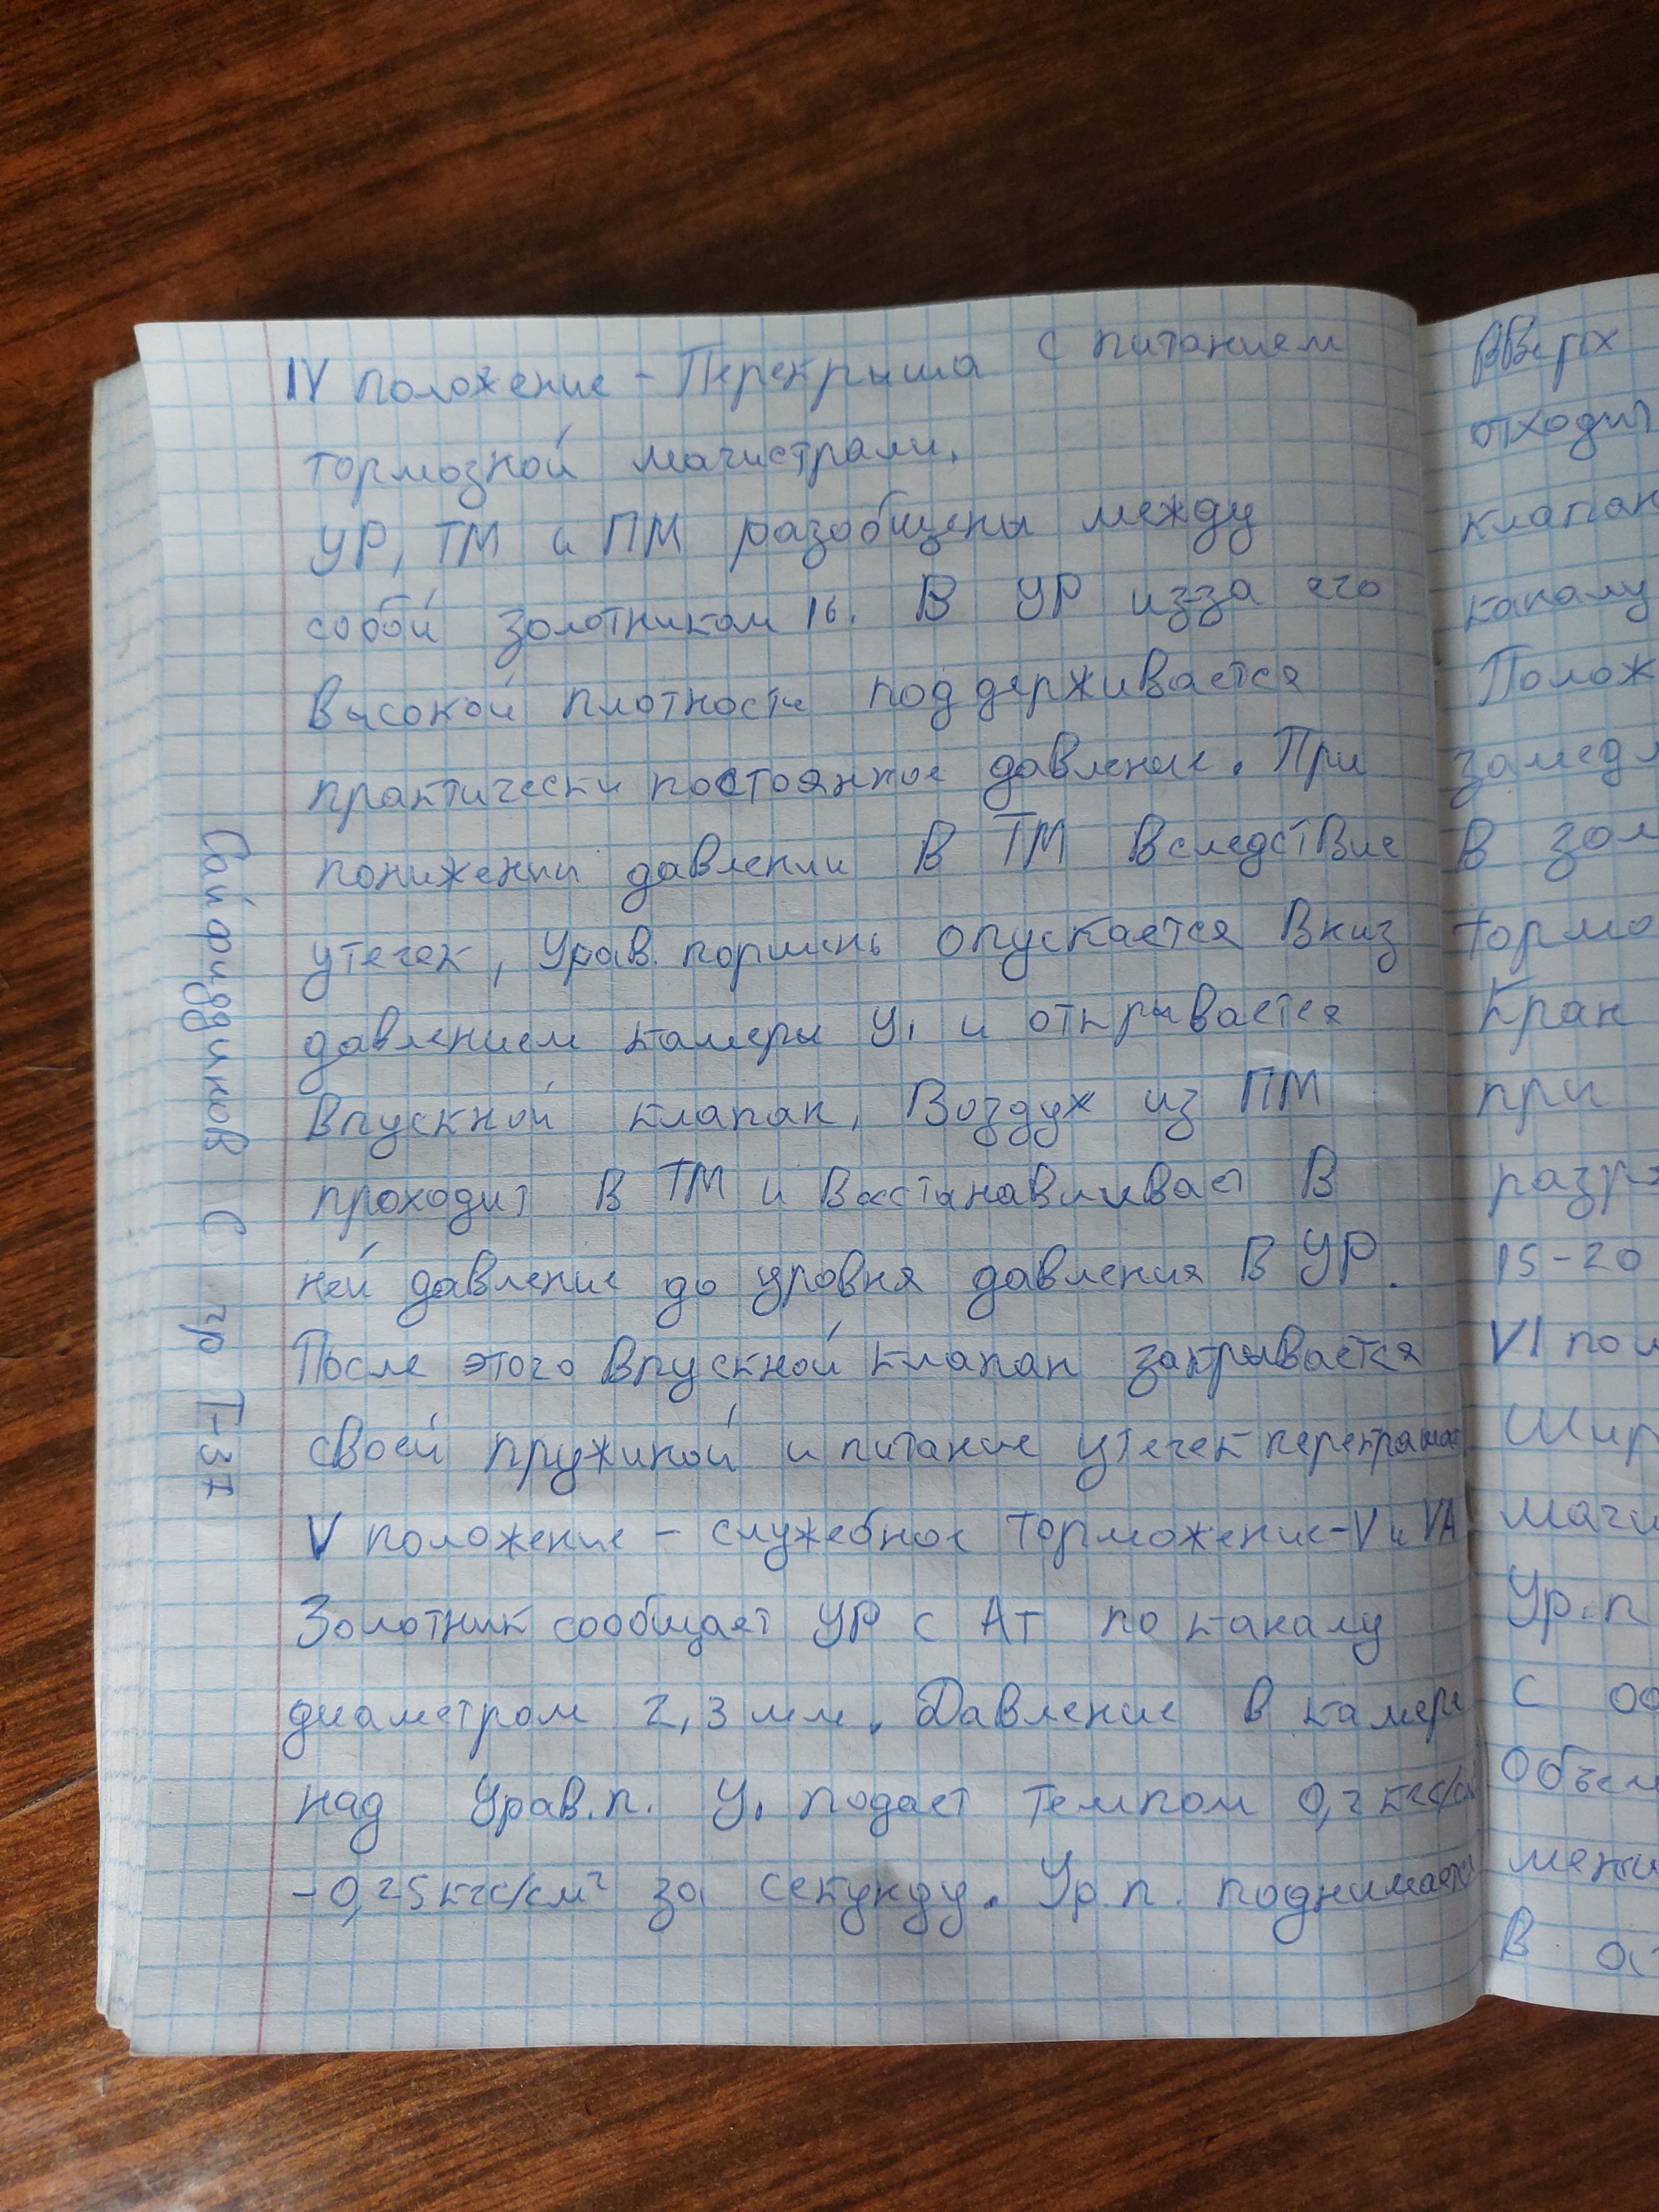 IV положение - Перекрыша с питанием
тормозной магистрали.
УР, ТМ и ПМ разобщены между
собой золотником 16. В УР изза его
высокой плотности поддерживается
практически постоянное давление. При
понижении давлении в ТМ вследствие
утечек, Урав. поршень опускается вниз
давлением камеры У1 и открывается
впускной клапан, Воздух из ПМ
проходит в ТМ и восстанавливает в
ней давление до уровня давления в УР.
После этого впускной клапан закрывается
своей пружиной и питание утечек
V положение - служебное торможение-V и VA
Золотник сообщает УР с Ат по каналу
диаметром 2,3 мм. Давление в камере
над Урав.п. У1 подает темпом 0,2 кгс/см
-0,25кгс/см² за секунду. Ур.п. поднимается
Сайфиддинов С гр Т-37
вверх
отходит
клапан
каналу
Полож
замедл
в зол
тормо
Кран
при
разр
15-20
VI пол
Шир
маги
Ур.п
с
Объем
в